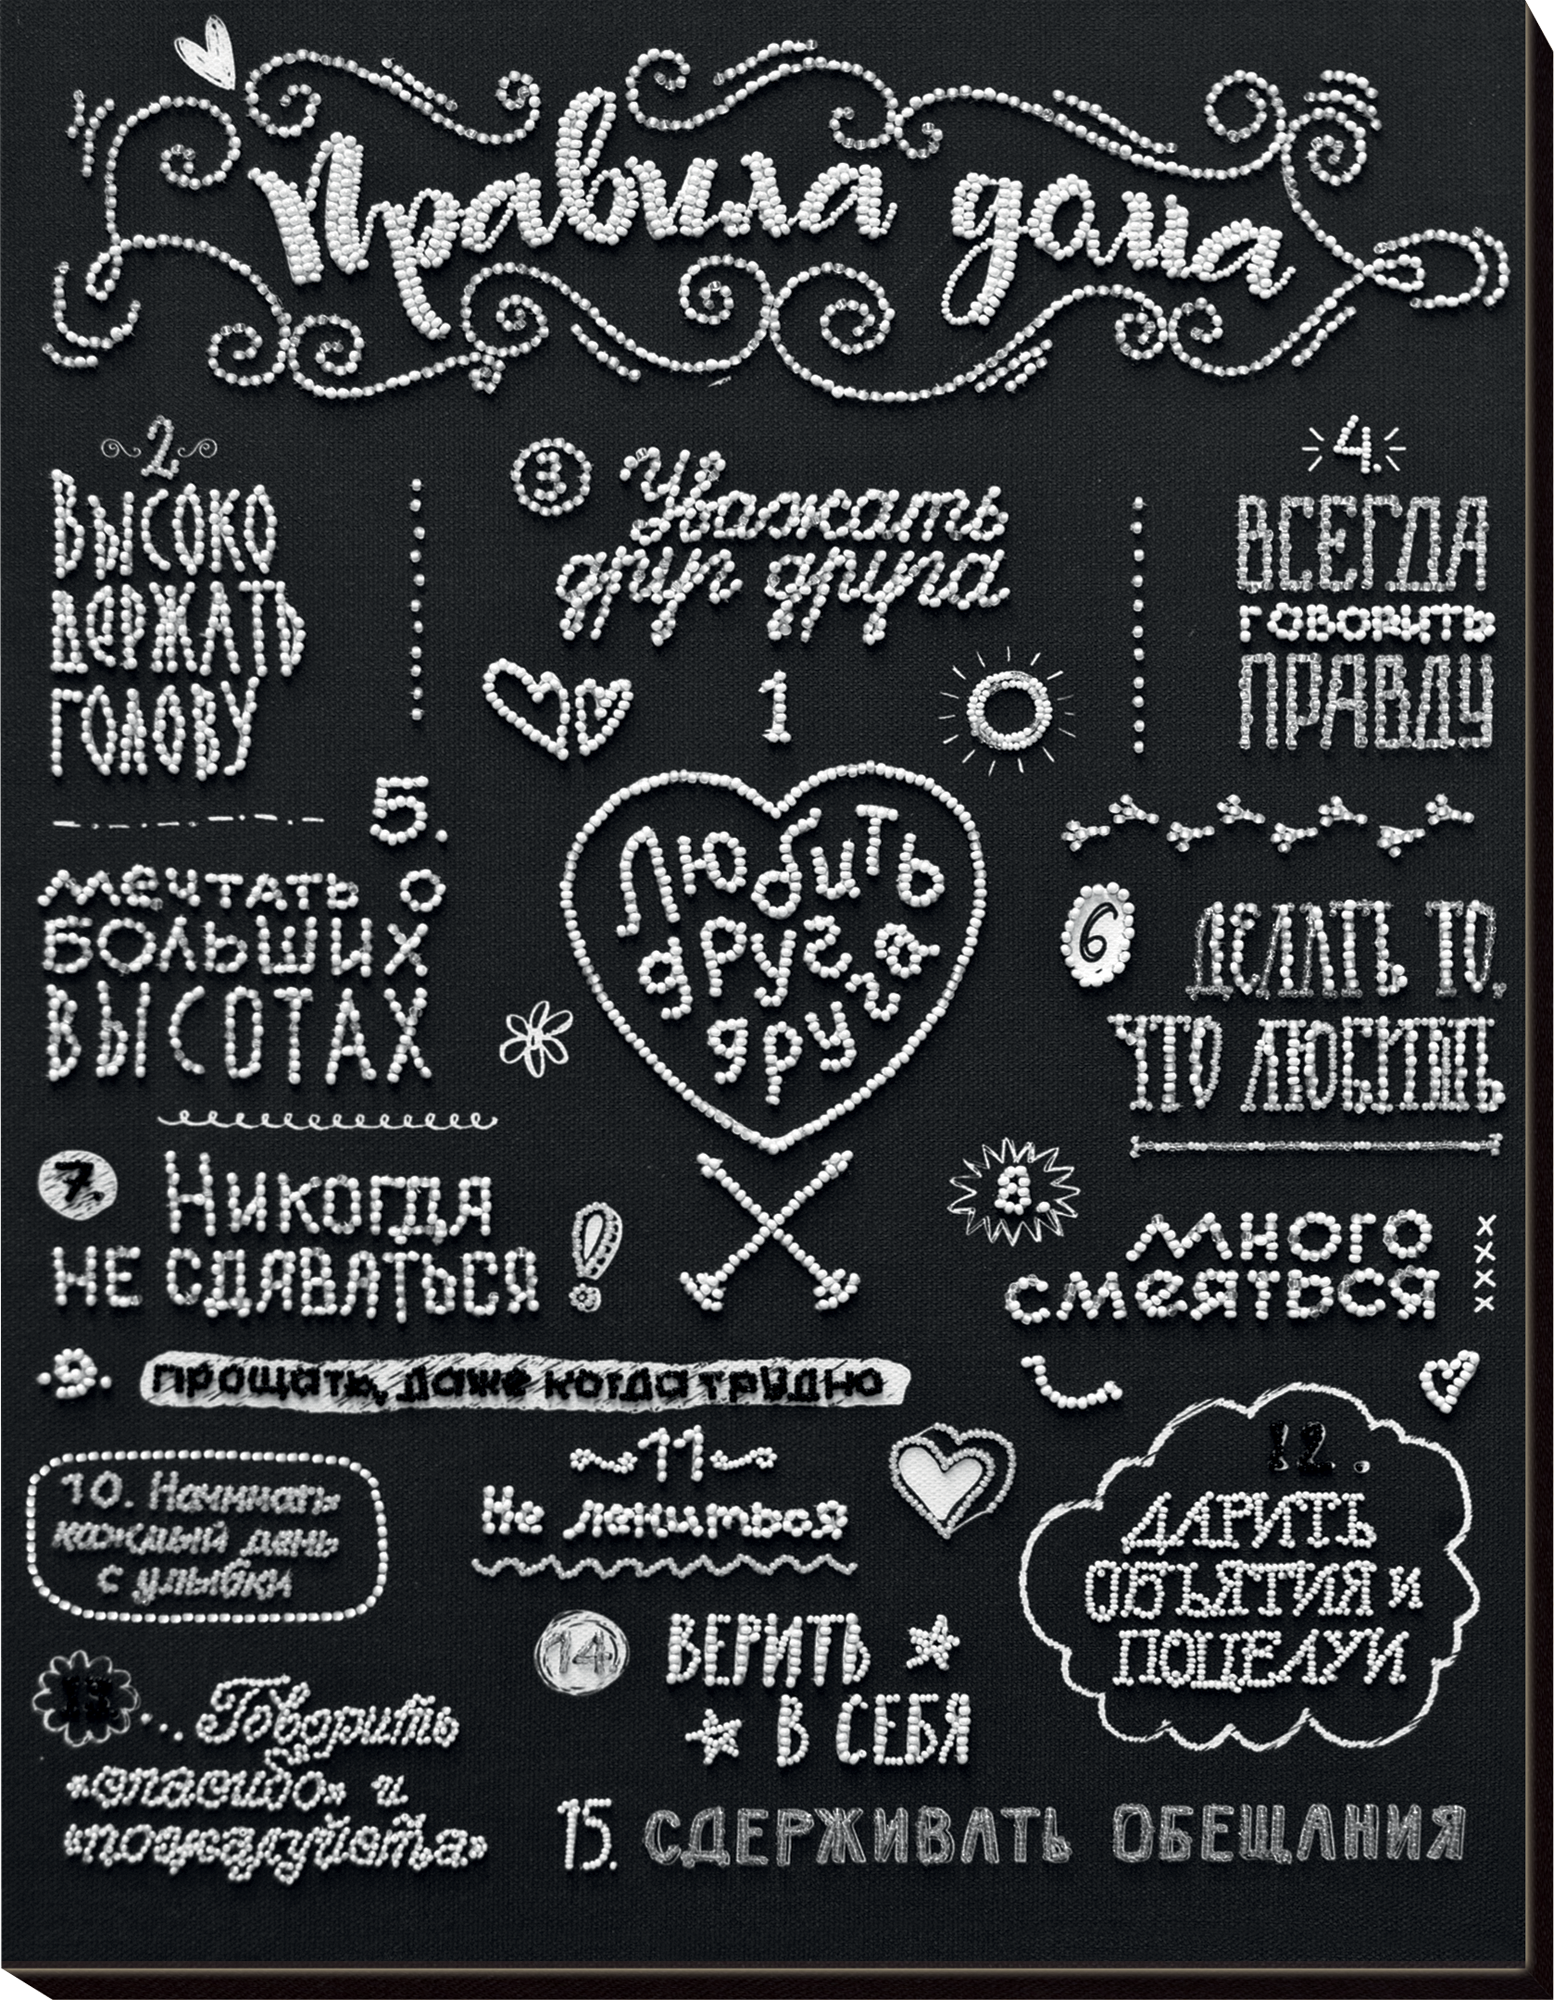 Правила дома
2
ВЫСОКО
ДЕРЖАТЬ
ГОЛОВУ
3
Уважать
друг друга
4.
ВСЕГДА
говорить
ПРАВДУ
1
Любить
друг
друга
5.
мечтать о
больших
высотах
6
ДЕЛАТЬ ТО,
ЧТО ЛЮБИШЬ
7.
Никогда
не сдаваться
8.
много
смеяться
9.
прощать, даже когда трудно
10. Начинать
каждый день
с улыбки
11
Не лениться
12.
ДАРИТЬ
ОБЪЯТИЯ и
ПОЦЕЛУИ
13
... Говорить
«спасибо» и
«пожалуйста»
14.
ВЕРИТЬ
В СЕБЯ
15. СДЕРЖИВАТЬ ОБЕЩАНИЯ